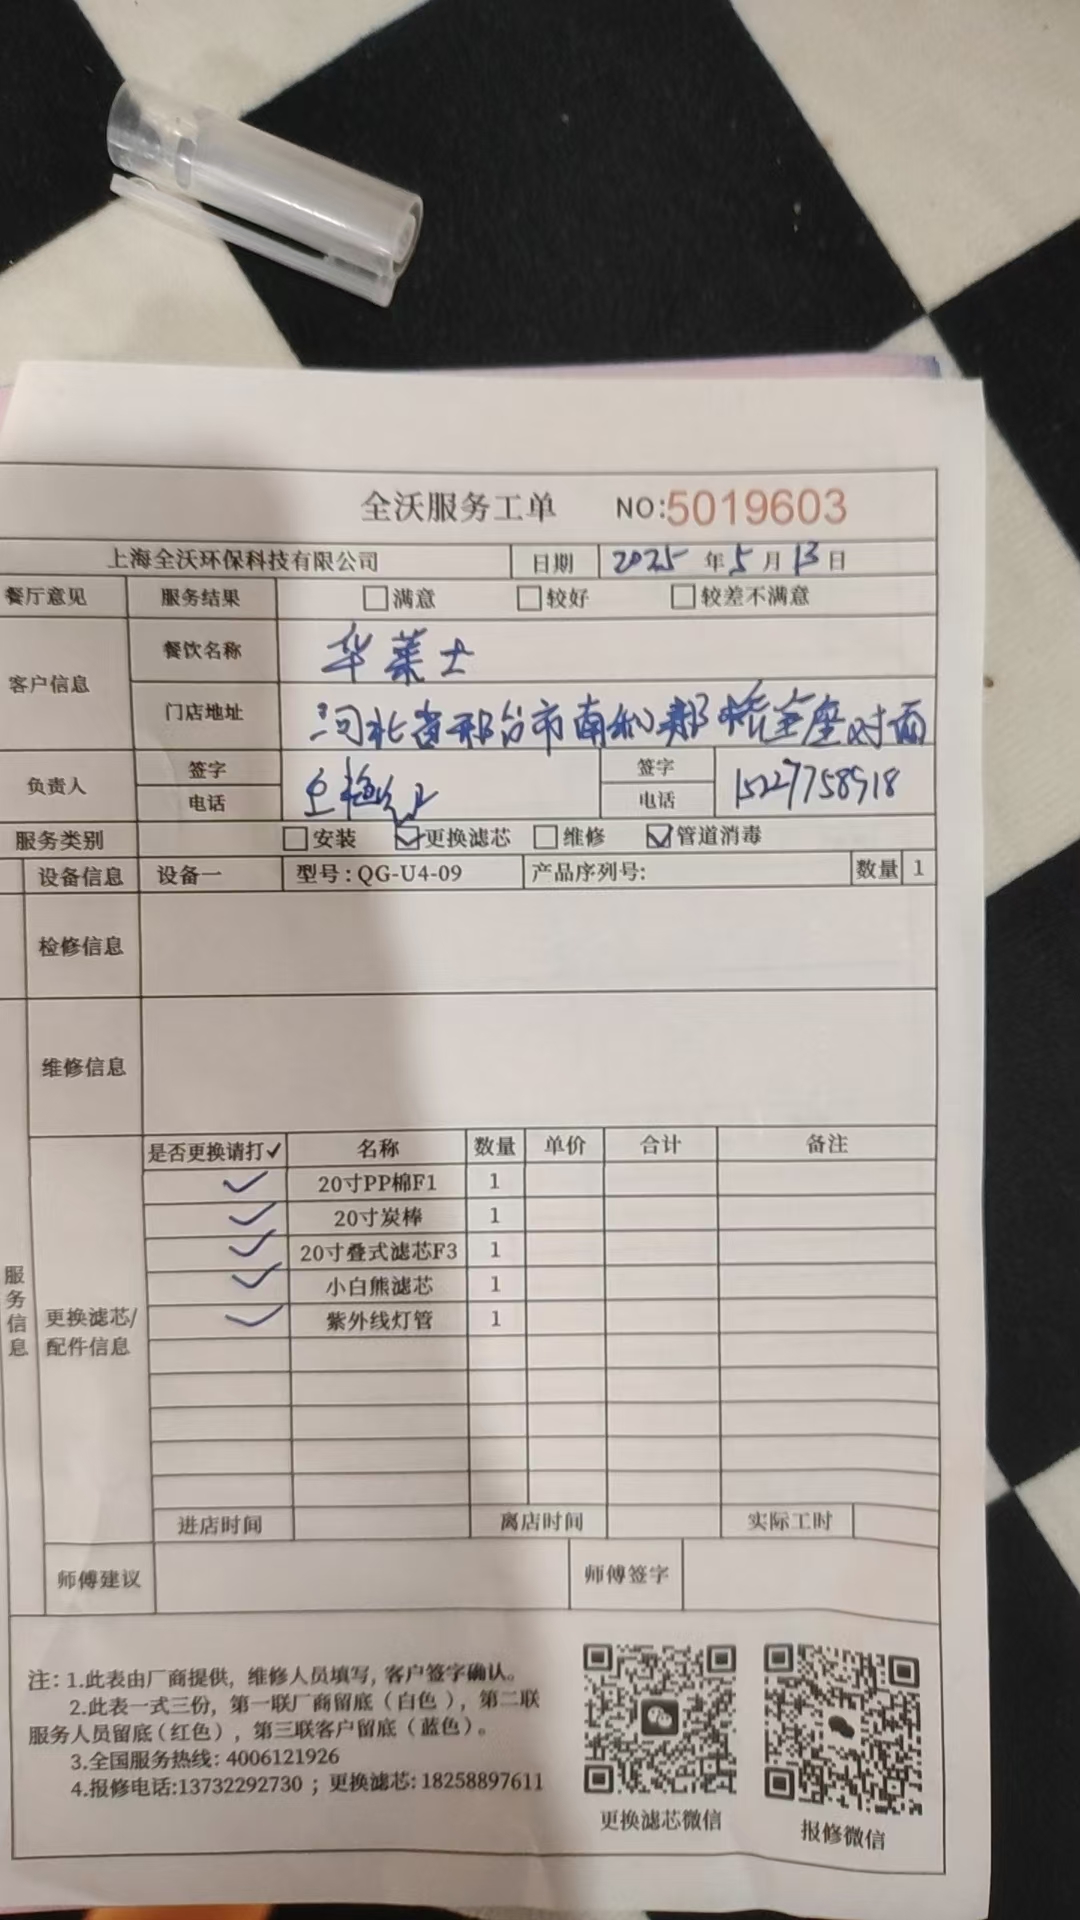 全沃服务工单 NO:5019603
上海全沃环保科技有限公司 日期 2025 年 5 月 13 日
餐厅意见 服务结果 满意 较好 较差不满意
客户信息
餐饮名称 华莱士
门店地址 河北省邢台市南和郡 座对面
负责人
签字 签字
电话 电话 15227758918
服务类别 安装 更换滤芯 维修 管道消毒
设备信息 设备一 型号:QG-U4-09 产品序列号: 数量 1
检修信息
维修信息
服务信息
更换滤芯/
配件信息
是否更换请打✓ 名称 数量 单价 合计 备注
✓ 20寸PP棉F1 1
✓ 20寸炭棒 1
✓ 20寸叠式滤芯F3 1
✓ 小白熊滤芯 1
✓ 紫外线灯管 1
进店时间 离店时间 实际工时
师傅建议 师傅签字
注: 1.此表由厂商提供, 维修人员填写, 客户签字确认。
2.此表一式三份, 第一联厂商留底(白色), 第二联
服务人员留底(红色), 第三联客户留底(蓝色)。
3.全国服务热线: 4006121926
4.报修电话:13732292730 ; 更换滤芯: 18258897611
更换滤芯微信 报修微信